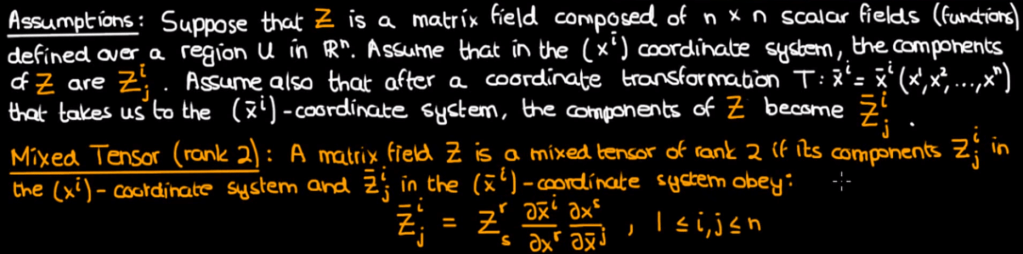 Assumptions: Suppose that Z is a matrix field composed of n x n scalar fields (functions)
defined over a region U in ℝⁿ. Assume that in the (xⁱ) coordinate system, the components
of Z are Zⁱⱼ. Assume also that after a coordinate transformation T: x̄ⁱ = x̄ⁱ(x¹,x²,...,xⁿ)
that takes us to the (x̄ⁱ)-coordinate system, the components of Z become Z̄ⁱⱼ.
Mixed Tensor (rank 2): A matrix field Z is a mixed tensor of rank 2 if its components Zⁱⱼ in
the (xⁱ)-coordinate system and Z̄ⁱⱼ in the (x̄ⁱ)-coordinate system obey:
Z̄ⁱⱼ = Zʳₛ ∂x̄ⁱ/∂xʳ ∂xˢ/∂x̄ʲ , 1 ≤ i,j ≤ n